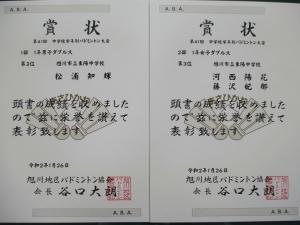 A.B.A.
賞状
第41回 中学校学年別バドミントン大会
1部 1年男子ダブルス
第3位 旭川市立東陽中学校
松浦知輝
頭書の成績を収めました
ので茲に栄誉を讃えて
表彰致します
令和2年1月26日
旭川地区バドミントン協会
会長 谷口大朗
A.B.A.
A.B.A.
賞状
第41回 中学校学年別バドミントン大会
2部 1年女子ダブルス
第3位 旭川市立東陽中学校
河西陽花
藤沢妃那
頭書の成績を収めました
ので茲に栄誉を讃えて
表彰致します
令和2年1月26日
旭川地区バドミントン協会
会長 谷口大朗
A.B.A.